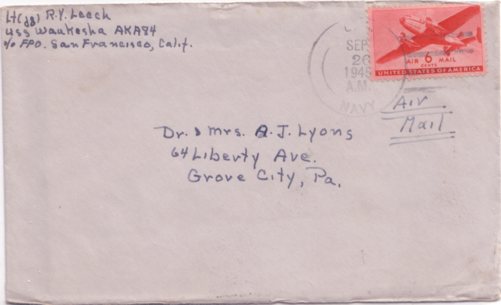 Lt(jg) R.Y. Leech
USS Waukesha AKA84
c/o FPO. San Francisco, Calif.
SEP
26
1945
A.M.
NAVY
AIR 6 MAIL
CENTS
UNITED STATES OF AMERICA
Air
Mail
Dr. & Mrs. A.J. Lyons
64 Liberty Ave.
Grove City, Pa.